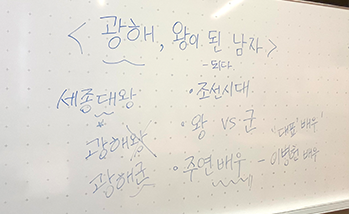 < 광해, 왕이 된 남자 >
- 되다
세종대왕
• 조선시대
*
광해왕
• 왕 vs 군
광해군
• 주연배우 - 이병헌 배우
"대표" 배우